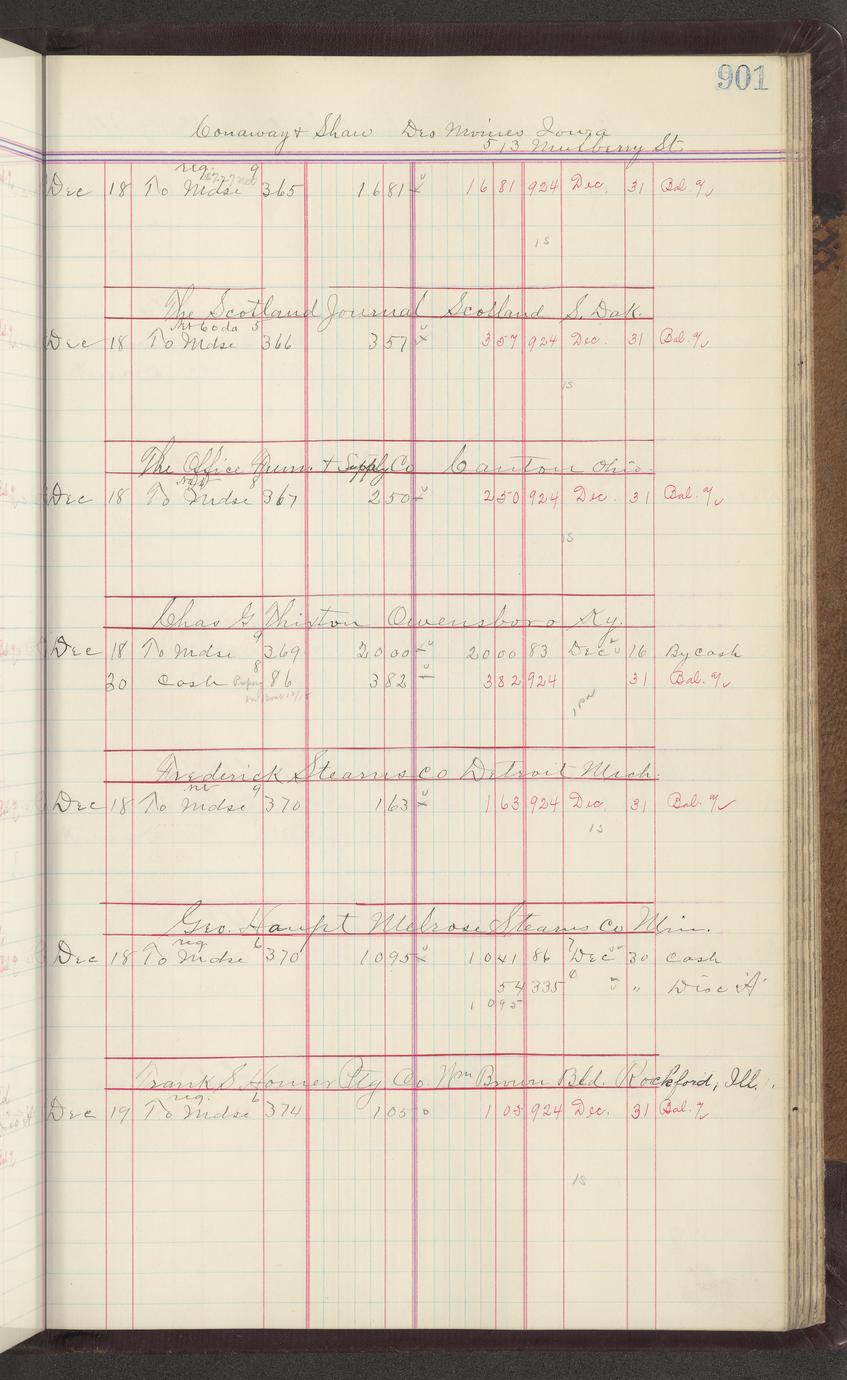 901
Conaway & Shaw Des Moines Iowa
513 Mulberry St.
reg. 9
Dec 18 To Mdse 365 16 81 16 81 924 Dec. 31 Bal. %
15
The Scotland Journal Scotland S. Dak.
5
Dec 18 To Mdse 366 3 57 3 57 924 Dec. 31 Bal. %
15
The Office Furn. & Supply Co Canton Ohio.
8
Dec 18 To Mdse 367 2 50 2 50 924 Dec. 31 Bal. %
15
Chas G Thixton Owensboro Ky.
9
Dec 18 To Mdse 369 20 00 20 00 83 Dec 16 By cash
8
30 Cash 86 3 82 3 82 924 31 Bal. %
Frederick Stearns Co Detroit Mich.
9
Dec 18 To Mdse 370 1 63 1 63 924 Dec. 31 Bal. %
15
Geo. Haupt Melrose Stearns Co Min.
reg 6 7
Dec 18 To Mdse 370 10 95 10 41 86 Dec 30 Cash
6
54 335 " " Disc "A"
10 95
Frank S. Horner Ptg Co. Wm Brown Bld. Rockford, Ill.
reg. 6
Dec 19 To Mdse 374 1 05 0 1 05 924 Dec. 31 Bal. %
15